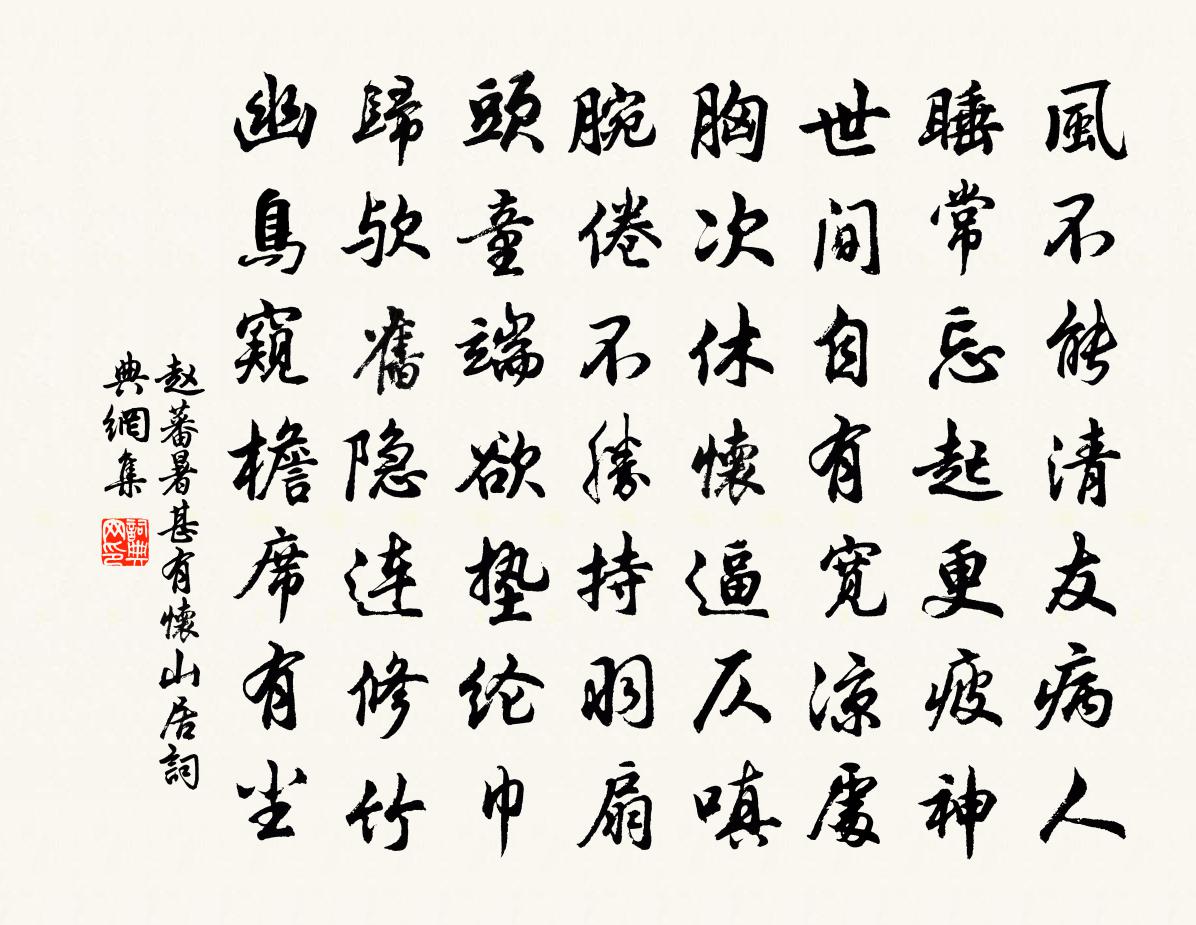 風不能清友病人
睡常忘起更疲神
世间自有宽凉處
胸次休懷逼仄嗔
腕倦不勝持羽扇
頭童端欲垫纶巾
歸欤舊隐连修竹
幽鳥窺檐席有尘
赵蕃暑甚有懷山居詞
典網集
詞典网印